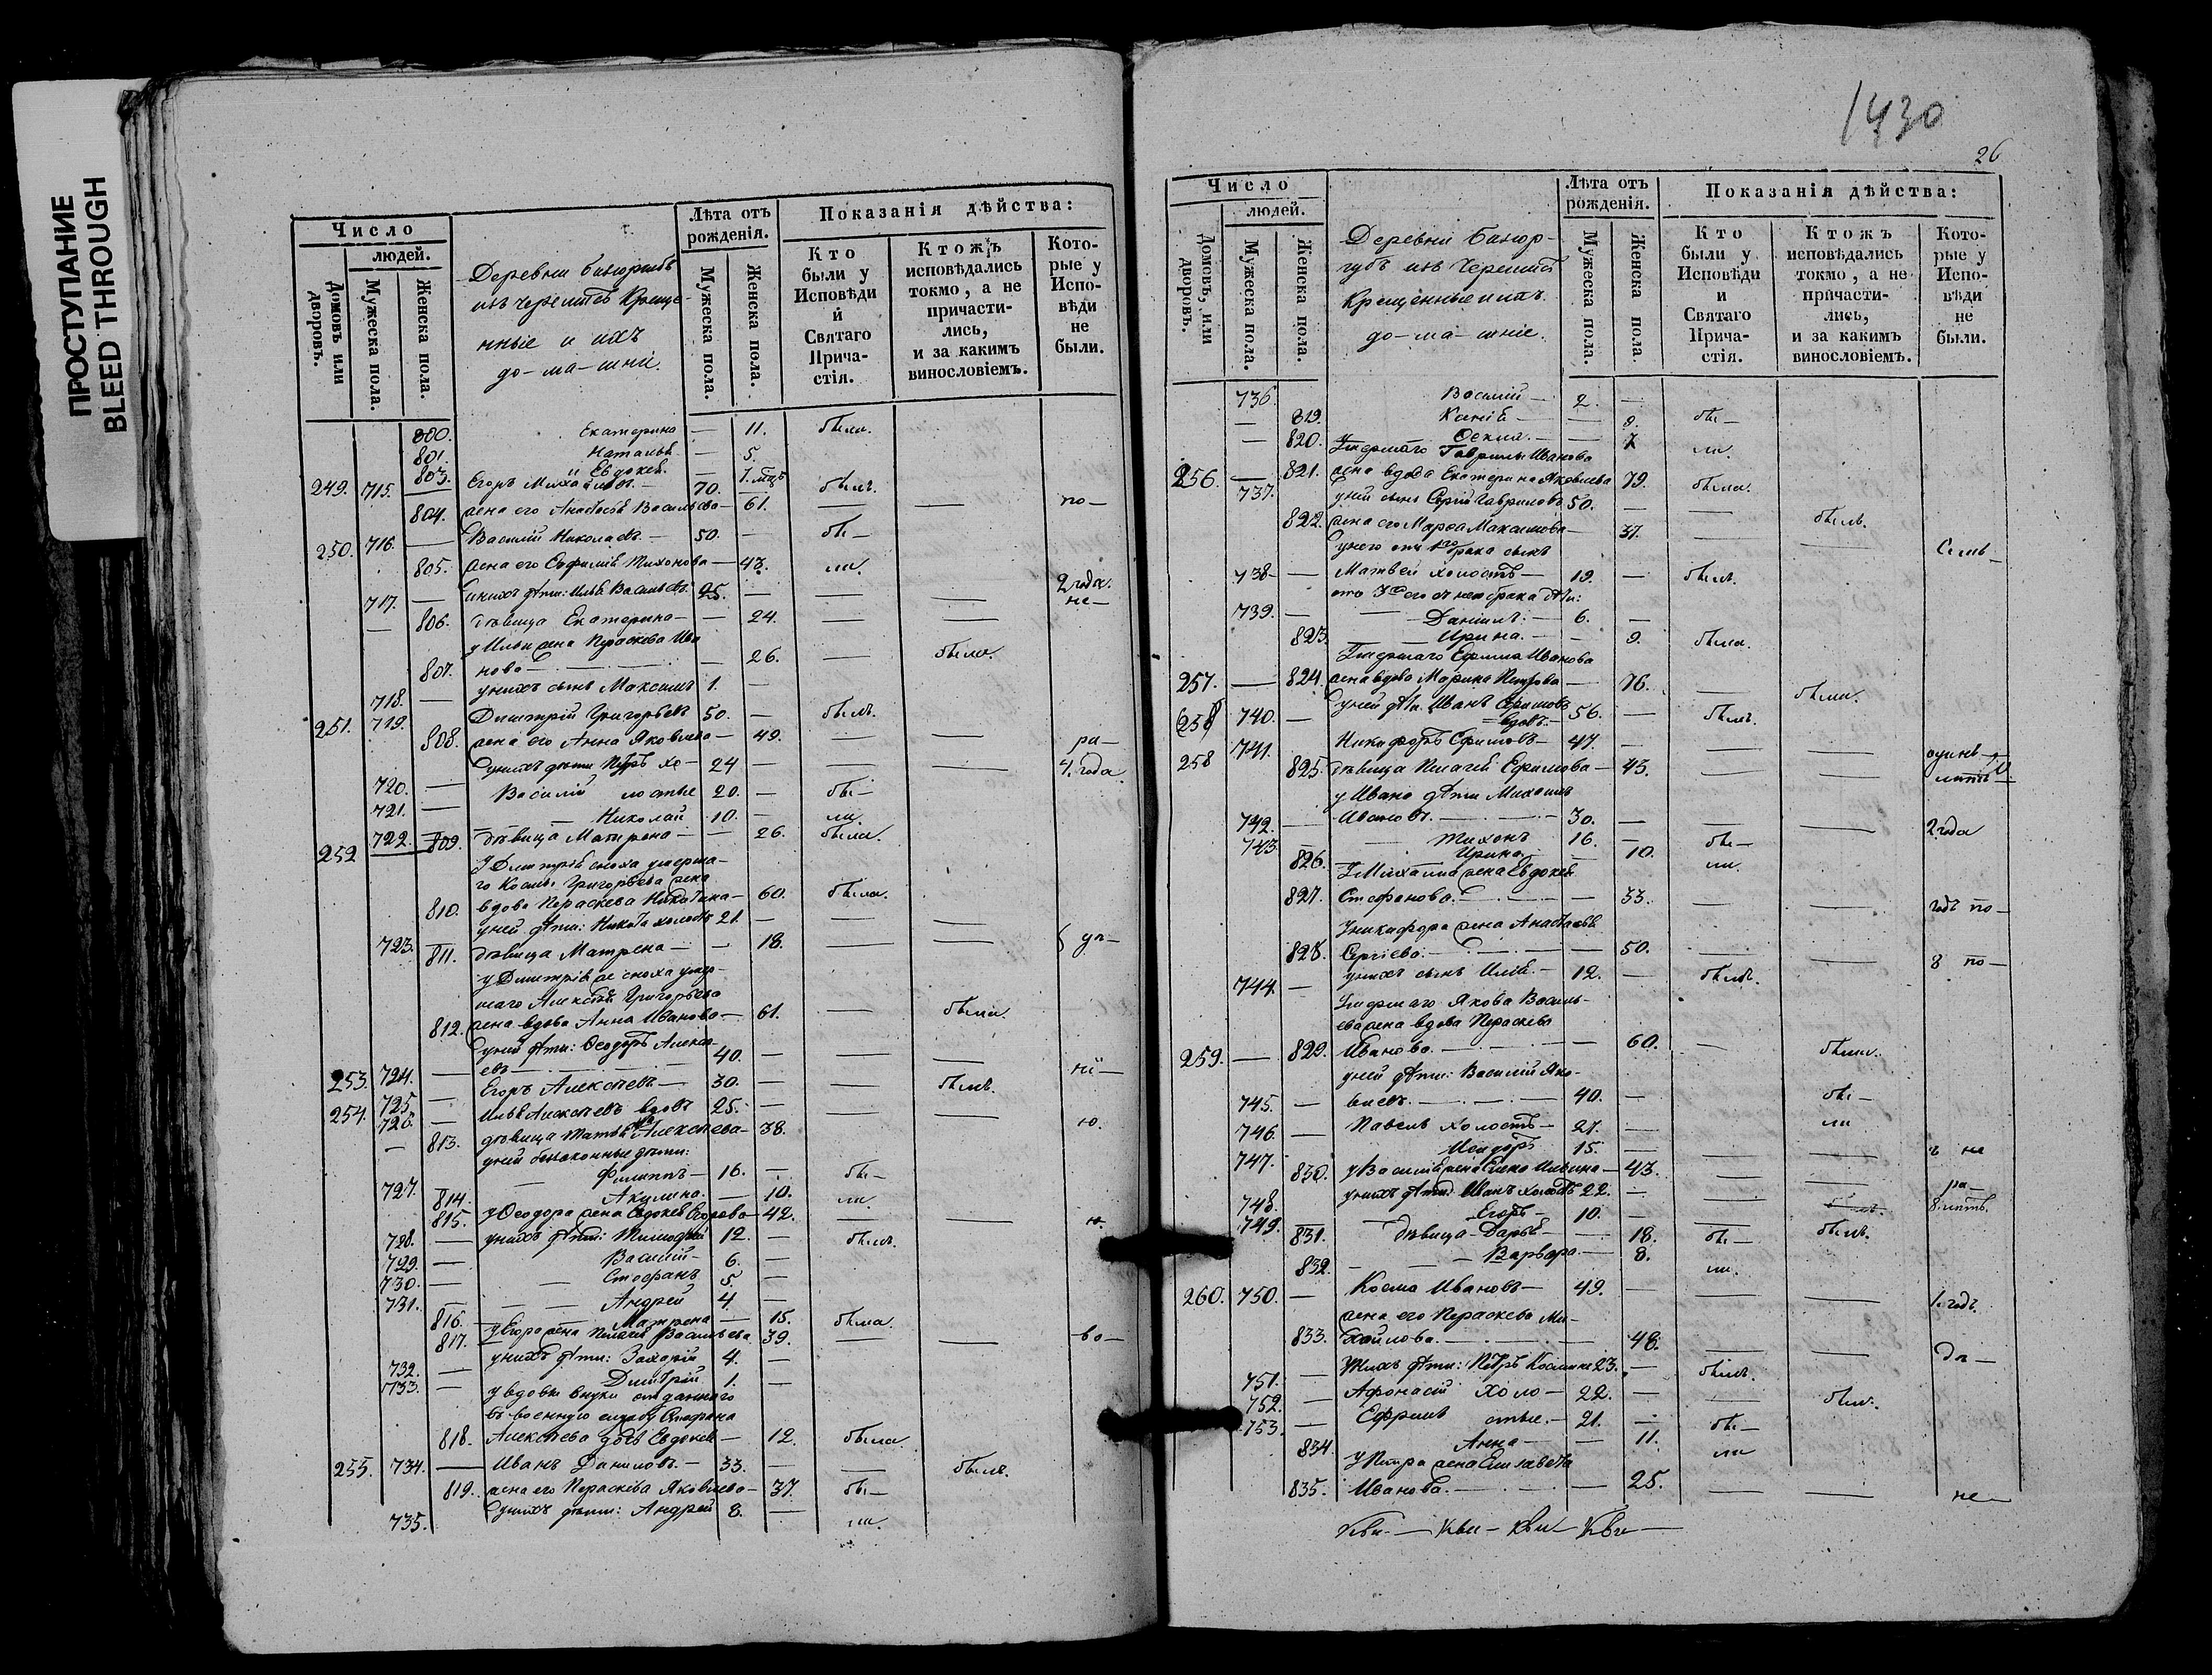 ПРОСТУПАНИЕ
BLEED THROUGH
Число
людей.
Домовъ или дворовъ.
Мужеска пола.
Женска пола.
Деревни
изъ черемисъ Креще-
нные и ихъ
до-ма-шнiе.
Лѣта отъ рожденія.
Мужеска пола.
Женска пола.
Показанія дѣйства:
Кто были у Исповѣди и Святаго Прича-стія.
Ктожъ исповѣдались токмо, а не причасти-лись, и за какимъ винословіемъ.
Кото-рые у Испо-вѣди не были.
800. Екатерина — 11. были.
801. Наталья — 5.
803. и Евдокія. — 1. мцъ
249. 715. Егоръ Михайловъ. — 70. былъ.
804. жена его Анастасія Васильева — 61. — — по—
250. 716. — Василій Николаевъ. — 50. — бы—
805. жена его Евфимія Тихонова — 43. ли.
717. — у нихъ дѣти: Илья Васильевъ. 25. — — — 2 года.
не—
806. дѣвица Екатерина — — 24. — —
у Ильи жена Параскева Ива
807. нова — — 26. — были.
718. — у нихъ сынъ Максимъ 1. —
251. 719. Димитрій Григорьевъ 50. — былъ.
808. жена его Анна Яковлева — 49. — — ра—
720. — у нихъ дѣти Петръ хо— 24 — — — 4. года
721. — Василій лостые 20. — бы—
722. — Николай 10. — ли.
252 809. дѣвица Матрена — — 26. была.
У Димитрія сноха умерша-
го Космы Григорьева жена
810. вдова Параскева Никитина — 60. была.
723. у ней дѣти: Никита холостъ 21. — — —
811. дѣвица Матрена — — 18. — — ув—
у Димитрія же сноха умер-
шаго Алексѣя Григорьева
812. жена вдова Анна Иванова — 61. — были
у ней дѣти: Ѳеодоръ Алексѣ-
253. 724. — евъ — 40. — — — ні—
725. — Егоръ Алексѣевъ — 30. — — былъ.
254. 726. — Илья Алексѣевъ вдовъ 25. — — — ю.
— 813. дѣвица Татьяна Алексѣева — 38.
у ней беззаконные дѣти:
727. — Филиппъ — 16. — бы—
814. Акулина. — 10. ли.
815. у Ѳеодора жена Евдокія Егорова — 42. — — ю.
728. — у нихъ дѣти: Тимофей 12. — былъ.
729. — Василій — 6. —
730. — Стефанъ 5. —
731. — Андрей 4. —
816. Матрена — 15. была.
817. у Егора жена Пелагія Васильева 39. — — во—
732. — у нихъ дѣти: Захарій 4. —
733. — Димитрій 1. —
у вдовы внуки отданнаго
въ военную службу Стефана
818. Алексѣева дочь Евдокія — 12. была.
255. 734. — Иванъ Даниловъ. — 33. — — былъ.
819. жена его Параскева Яковлева — 37. бы—
735. у нихъ дѣти: Андрей 8. — ли.
1430
26
Число
людей.
Домовъ, или дворовъ.
Мужеска пола.
Женска пола.
Деревни
изъ Черемисъ
Крещённые и ихъ
до-ма-шніе.
Лѣта отъ рожденія.
Мужеска пола.
Женска пола.
Показанія дѣйства:
Кто были у Исповѣди и Святаго Прича-стія.
Ктожъ исповѣдались токмо, а не причасти-лись, и за какимъ винословіемъ.
Кото-рые у Испо-вѣди не были.
736. Василій — 2. —
— 819. — 9. бы—
— 820. Ѳекла. — — 7 ли.
Умершаго Гаврилы Иванова
256. — 821. жена вдова Екатерина Яковлева 79. была.
737. у ней сынъ Сергій Гавриловъ 50. — — былъ.
822. жена его Марѳа Максимова — 37. — —
у него отъ 1го брака сынъ
738. — Матвей холостъ — 19. — былъ.
отъ 3го
739. — — Даніилъ. — 6. —
823. — Ирина. — — 9. была.
Умершаго Ефима Иванова
257. — 824. жена вдова Марина Петрова — 76. — были.
258 740. — у ней дѣти. Иванъ Ефимовъ
вдовъ. — 56. — былъ.
258 741. Никифоръ Ефимовъ — 47. — — — одинъ—
825. дѣвица Пелагія Ефимова — 43. — —
у Ивана дѣти Михаилъ
742. — Ивановъ. — 30. — — — 2 года
743. — Тихонъ 16. — бы—
826. Ирина. — 10. ли.
У Михаила жена Евдокія
827. Стефанова. — — 33. — — годъ по—
У Никифора жена Анастасія
828. Сергіева. — — 50. — — 8 по—
744. — у нихъ сынъ Илія. — 12. — былъ.
Умершаго Якова Василь-
ева жена вдова Параскева
259. — 829. Иванова. — — 60. — были.
у ней дѣти: Василій Яко-
745. — влевъ. — 40. — бы—
746. — Павелъ холостъ — 27. — ли
747. — 15. — — — не
830. у Василія жена Елена Ильина — 43. — — ра—
748. у нихъ дѣти: Иванъ холостъ 22. — — 8. лѣтъ.
749. — Егоръ — 10. — —
831. дѣвица Дарья — — 18. бы— былъ.
832. — — Варвара — 8. ли.
260. 750. — Косма Ивановъ — 49. — — — 1. годъ.
жена его Параскева Ми-
833. хайлова. — 48. — — дв—
751. — У нихъ дѣти: Петръ Косминъ 23. — былъ.
752. — Афонасій холо— 22. — — был.
753. — Ефремъ стые. — 21. — бы—
834. Анна — — 11. ли
У Петра жена Елизавета
835. Иванова. — — 25. — — не—